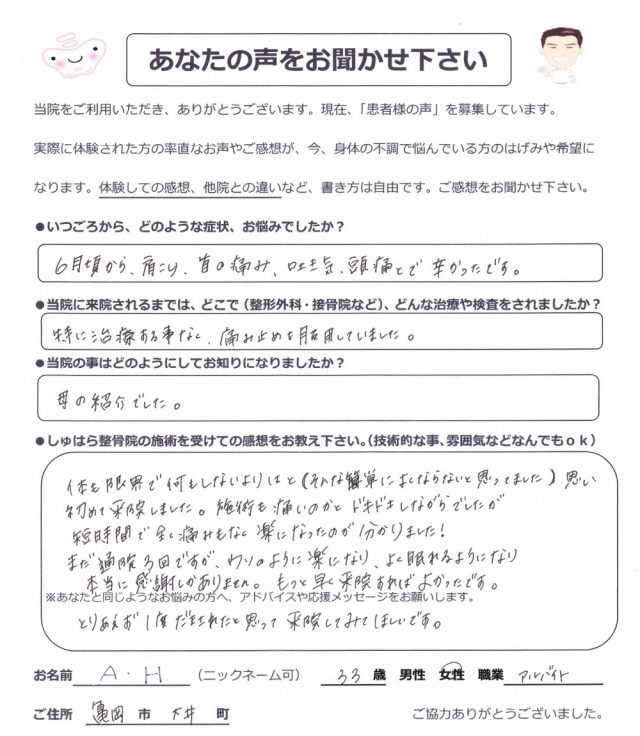 あなたの声をお聞かせ下さい
当院をご利用いただき、ありがとうございます。現在、「患者様の声」を募集しています。
実際に体験された方の率直なお声やご感想が、今、身体の不調で悩んでいる方のはげみや希望に
なります。体験しての感想、他院との違いなど、書き方は自由です。ご感想をお聞かせ下さい。
●いつごろから、どのような症状、お悩みでしたか？
6月頃から、肩こり、首の痛み、吐き気、頭痛とで 辛かったです。
●当院に来院されるまでは、どこで（整形外科・接骨院など）、どんな治療や検査をされましたか？
特に治療する事なく、痛み止めを服用していました。
●当院の事はどのようにしてお知りになりましたか？
母の紹介でした。
●しゅはら整骨院の施術を受けての感想をお教え下さい。（技術的な事、雰囲気などなんでもｏｋ）
体も限界で何もしないよりはと（そんな簡単によくならないと思ってました）思い
初めて来院しました。施術も痛いのかとドキドキしながらでしたが
短時間で全く痛みもなく楽になったのが分かりました！
まだ通院3回ですが、ウソのように楽になり、よく眠れるようになり
本当に感謝しかありません。もっと早く来院すればよかったです。
※あなたと同じようなお悩みの方へ、アドバイスや応援メッセージをお願いします。
とりあえず1度だまされたと思って来院してみてほしいです。
お名前 A・H （ニックネーム可） 33 歳 男性 女性 職業 アルバイト
ご住所 亀岡 市 大井 町 ご協力ありがとうございました。